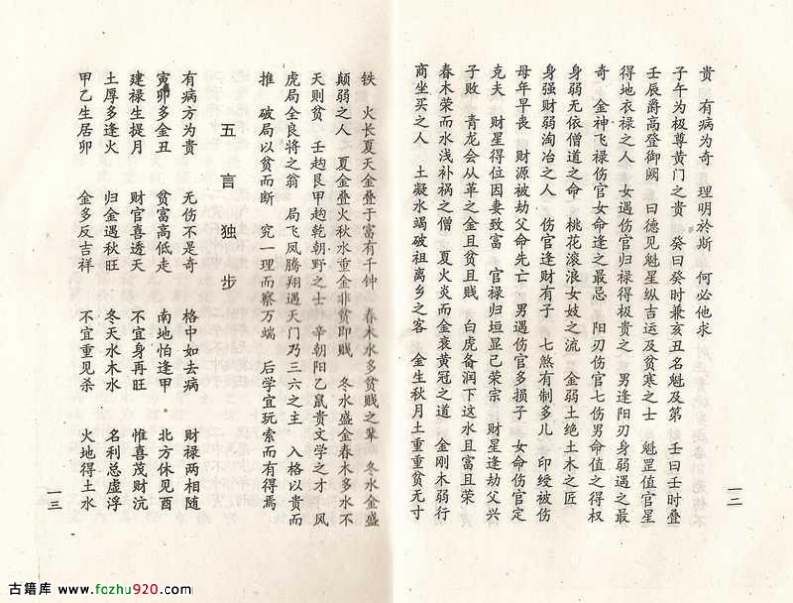 贵 有病为奇 理明於斯 何必他求
子午为极尊黄门之贵 癸曰癸时兼亥丑名魁及第 壬曰壬时叠
壬辰爵高登御阙 曰德见魁星纵吉运及贫寒之士 魁罡值官星
得地衣禄之人 女遇伤官归禄得极贵之 男逢阳刃身弱遇之最
奇 金神飞禄伤官女命逢之最忌 阳刃伤官七伤男命值之得权
身弱无依僧道之命 桃花滚浪女妓之流 金弱土绝土木之匠
身强财弱淘冶之人 伤官逢财有子 七煞有制多儿 印绶被伤
母年早丧 财源被劫父命先亡 男遇伤官多损子 女命伤官定
克夫 财星得位因妻致富 官禄归垣显己荣宗 财星逢劫父兴
子败 青龙会从革之金且贫且贱 白虎备润下这水且富且荣
春木荣而水浅补祸之僧 夏火炎而金衰黄冠之道 金刚木弱行
商坐买之人 土凝水竭破祖离乡之客 金生秋月土重重贫无寸
一二
铁 火长夏天金叠于富有千钟 春木水多贫贱之辈 冬水金盛
颠弱之人 夏金叠火秋水重金非贫即贱 冬水盛金春木多水不
夭则贫 壬趋艮甲趋乾朝野之士 辛朝阳乙鼠贵文学之才 风
虎局全良将之翁 局飞凤腾翔遇天门乃三六之主 入格以贵而
推 破局以贫而断 究一理而察万端 后学宜玩索而有得焉
五言独步
有病方为贵 无伤不是奇 格中如去病 财禄两相随
寅卯多金丑 贫富高低走 南地怕逢甲 北方休见酉
建禄生提月 财官喜透天 不宜身再旺 惟喜茂财沆
土厚多逢火 归金遇秋旺 冬天水木水 名利总虚浮
甲乙生居卯 金多反吉祥 不宜重见杀 火地得土水
一三
古籍库 www.fozhu920.com